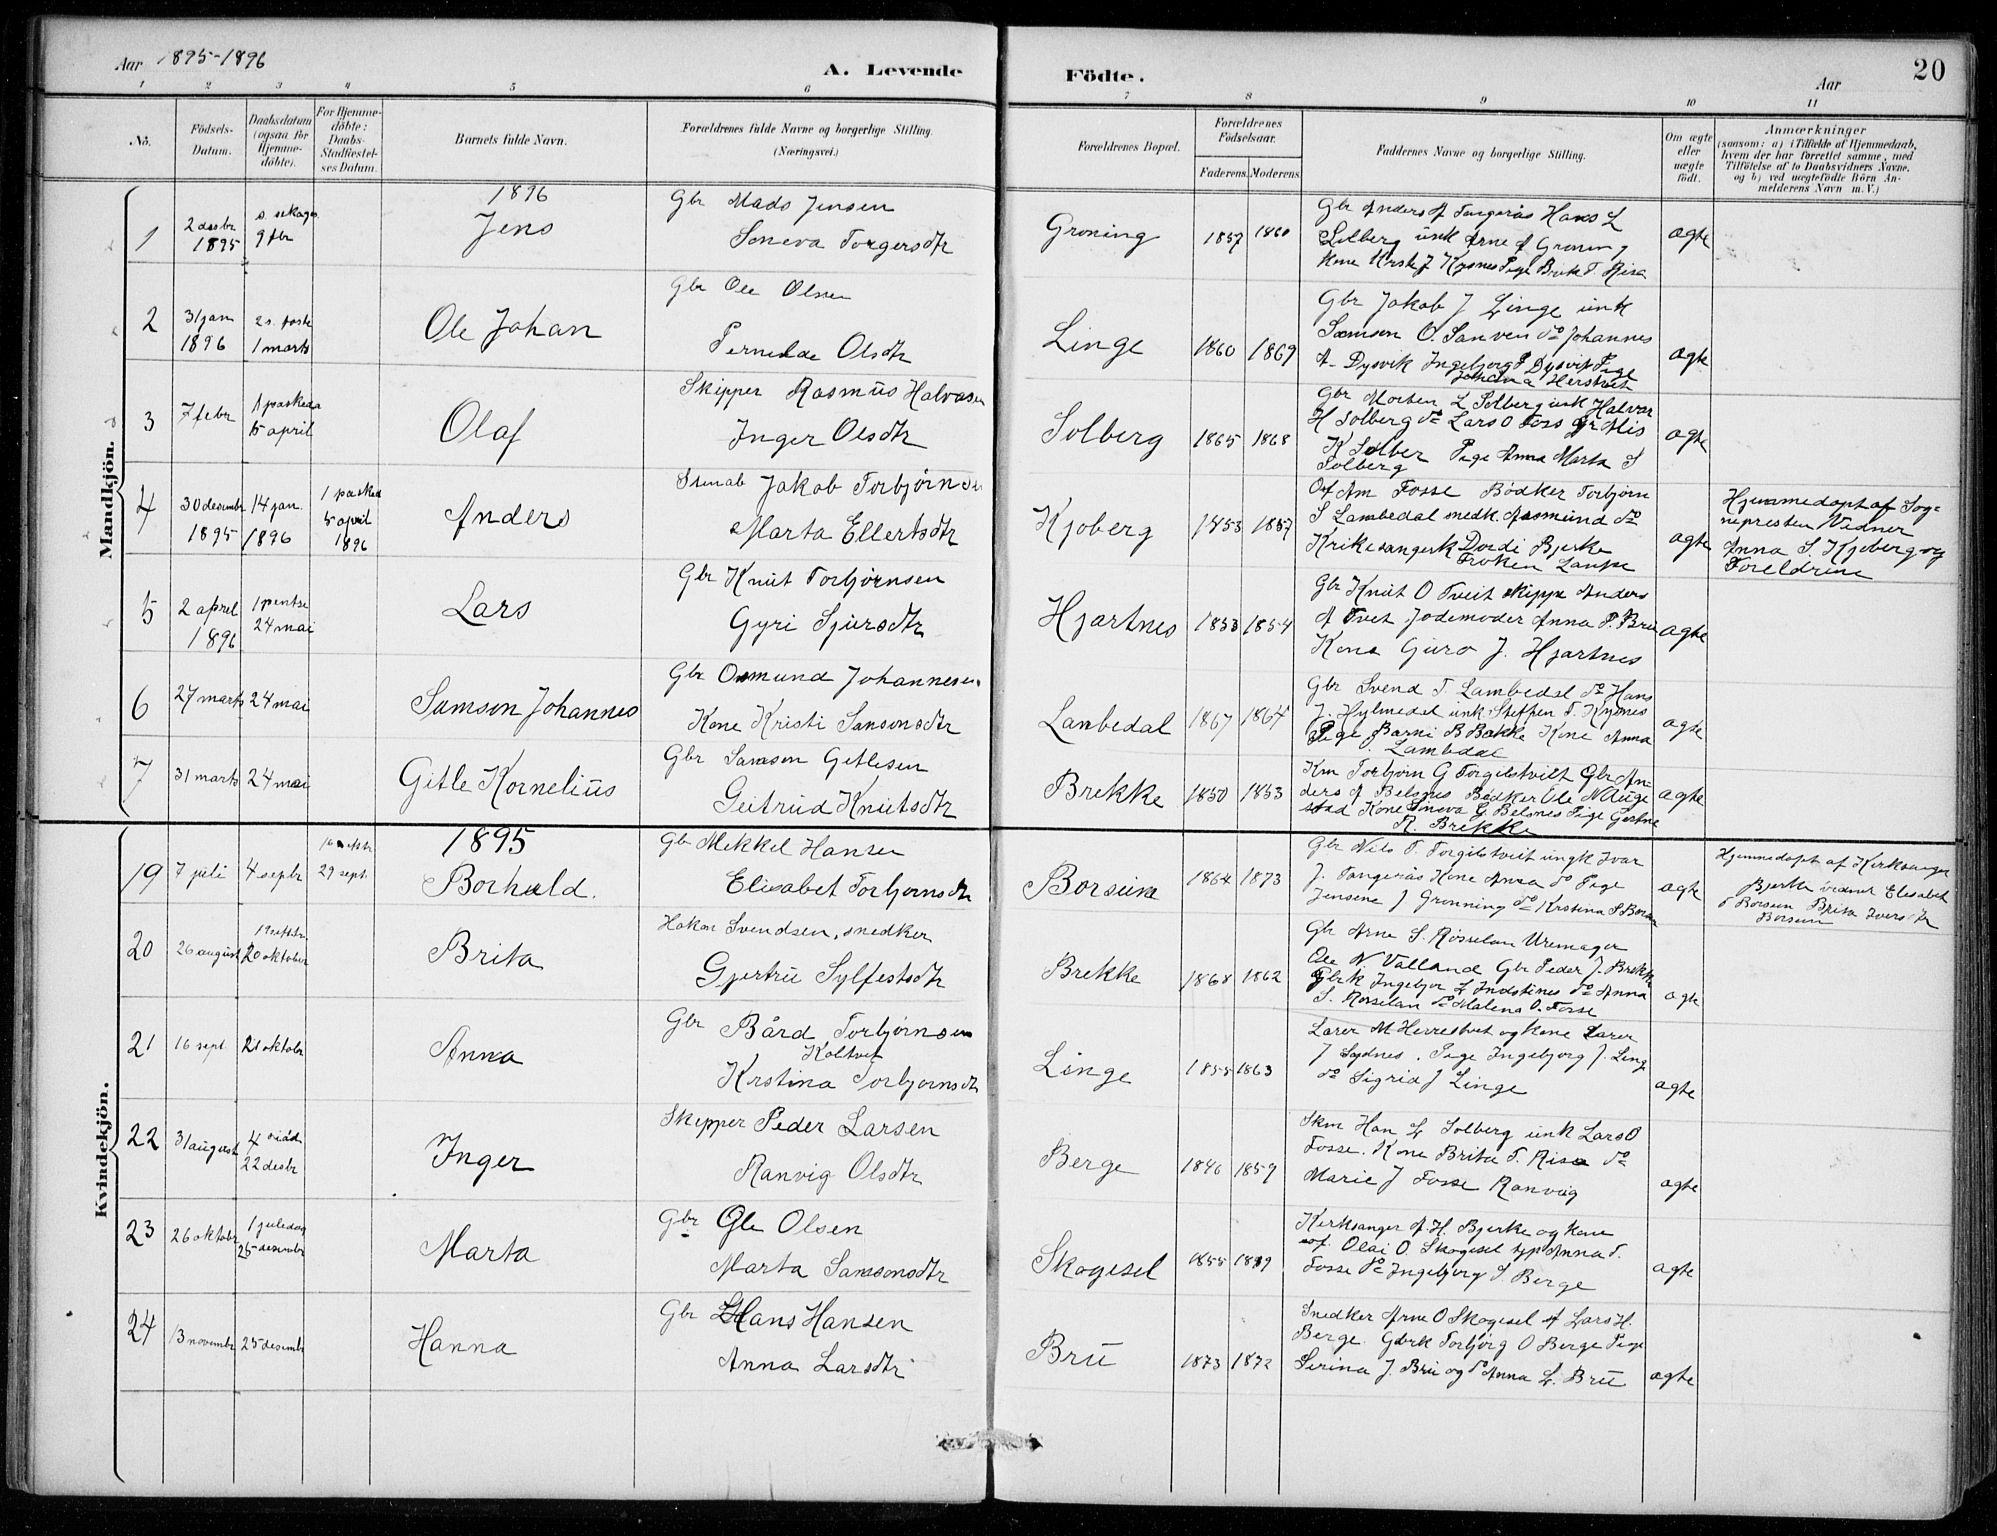 Aar 1895-1896
A. Levende Födte.
Aar
20
1 2 3 4 5 6 7 8 9 10 11
No.
Födsels-Datum.
Daabsdatum (ogsaa for Hjemme-döbte).
For Hjemme-döbte: Daabs-Stadfæstel-ses Datum.
Barnets fulde Navn.
Forældrenes fulde Navne og borgerlige Stilling. (Næringsvei.)
Forældrenes Bopæl.
Forældrenes Födselsaar.
Faderens. Moderens.
Faddernes Navne og borgerlige Stilling.
Om ægte eller uægte födt.
Anmærkninger
(saasom: a) i Tilfælde af Hjemmedaab, hvem der har forrettet samme, med Tilföielse af to Daabsvidners Navne, og b) ved uægtefödte Börn An-melderens Navn m. V.)
Mandkjön.
1896
1
2 desbr 1895
9 fbr
Jens
Gbr Mads Jensen
Soneva Torgersdtr
Groning
1857 1860
Gbr Anders A Tangerås Hans L
Solberg unk Arne A Groning
Kone J Kysnes Pige Brite T. Risa
agte
2
31 jan 1896
2 s. faste 1 marts
Ole Johan
Gbr Ole Olsen
Pernelde Olsdtr
Linge
1860 1869
Gbr Jakob J Linge unk
Samson O. Sanven do Johannes
A. Dysvik Ingebjorg P Dysvik Pige
Johana Herstveit
agte
3
7 febr
1 paskeda 5 april
Olaf
Skipper Rasmus Halvasen
Inger Olsdtr
Solberg
1865 1868
Gbr Morten L Solberg unk Halvar
H Solberg do Lars O Foss
K Solber Pige Anna Marta S
Solberg
agte
4
30 desembr 1895
14 jan 1896
1 pasked 5 april 1896
Anders
Jakob Torbjørnsen
Marta Ellertsdtr
Kjoberg
1853 1857
Am Fosse Bødker Torbjørn
S Lambedal snedk. Aasmund do
Krikesangerk Dordi Bjerke
Frøken Laupe
agte
Hjemmedøpt af Sog-
nepresten Vidner
Anna S. Kjoberg og
Foreldrene
5
2 aprel 1896
1 pentse 24 mai
Lars
Gbr Knut Torbjørnsen
Gyri Sjursdtr
Hjartnes
1853 1854
Gbr Knut O Tveit skippr Anders
A Tvet Jodemoder Anna P. Bru
Kona Guro J. Hjartnes
agte
6
27 marts
24 mai
Samson Johannes
Gbr Osmund Johannesen
Kone Kristi Sansonsdtr
Lambedal
1867 1864
Gbr Svend T. Lambedal do Hans
J. Hylmedel unk Steffen T. Kysnes
Pige Barni B Bakke Kone Anna
Lambedal
agte
7
31 marts
24 mai
Gitle Kornelius
Gbr Samson Getlesen
Geitrud Knutsdtr
Brekke
1850 1853
Km Torbjørn G Torgilstvilt Gbr An-
ders A Belsnes Bødker Ole N Auge
stad Kone Sineva G. Belsnes Pige
R. Brekke
agte
Kvindekjön.
1895
19
7 juli
4 sepbr
29 sept.
Borhuld.
Gbr Mekkel Hansen
Elisabet Torbjornsdtr
Borsum
1864 1873
Gbr Nils T. Torgilstveit ungk Ivar
J. Tangerås Kone Anna do Pige
Jensene J Gronning do Kristina S Borsum
agte
Hjemmedøpt af Kirksanger
Bjerke vidner Elesabet
T Borsum Brita Ivers dtr
Borsum
20
26 august
20 oktober
Brita
Hakon Svendsen, snedker
Gjertru Sylfestsdtr
Brekke
1868 1862
Gbr Arne S. Røsselan Uremager
Ole N Valland Gbr Peder J. Brekke
Gbrk Ingebjor L Indstenes do Anna
S. Rosselan do Malena O. Fosse
agte
21
16 sept
20 oktobr
Anna
Gbr Bård Torbjørnsen
Koltvet
Krstina Torbjornsdtr
Linge
1855 1863
Larer M Herrestvet og kone Larer
J Sydnes. Pige Ingebjorg J. Linge
do Sigrid J Linge
agte
22
31 august
4 22 desbr
Inger
Skepper Peder Larsen
Ranvig Olsdtr
Berge
1846 1859
Skm Han L Solberg unk Lars O
Fosse. Kone Brita T. Risa do
Marie J Fosse Ranveig
agte
23
26 oktobr
1 juledag 25 desembr
Marta
Gbr Ole Olsen
Marta Samsonsdtr
Skogesel
1855 1859
Kerksanger A. H. Bjerke og kone
Olai O. Skogesel Anna T.
Fosse do Ingebjorg S. Berge
agte
24
13 novembr
25 desembr
Hanna
Gbr Hans Hansen
Anna Larsdtr
Bru
1873 1872
Snedker Arne O Skogesel A Lars H.
Berge. Gbrk Torbjørg O Berge Pige
Serina J. Bru og do Anna L. Bru
agte